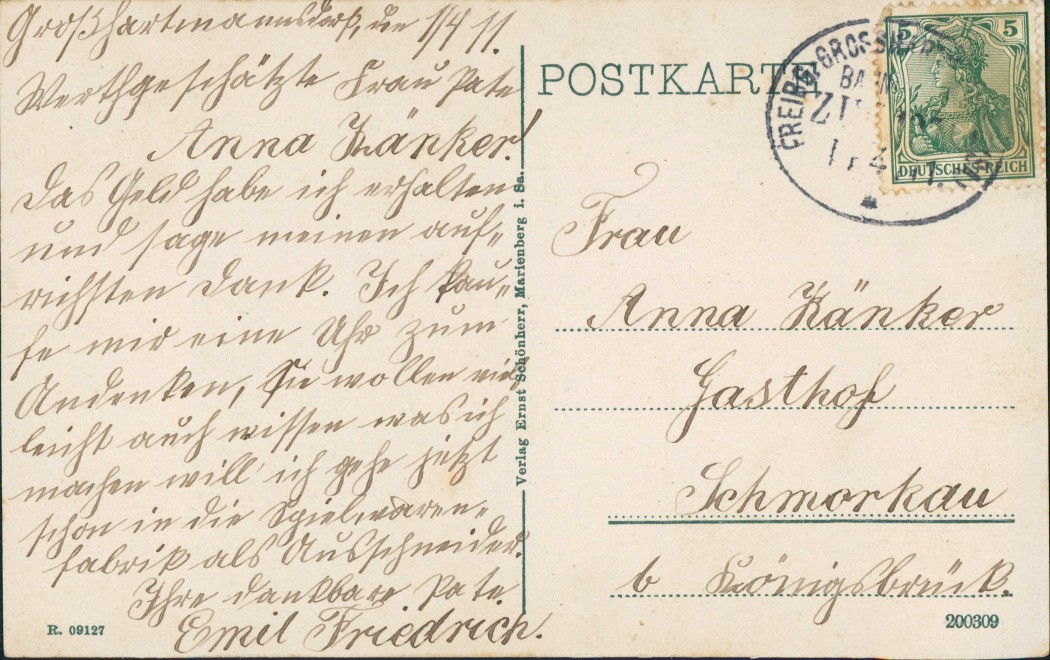 Großhartmannsdorf, den 1/4 11.
Werthgeschätzte Frau Pate
Anna Känker!
Das Geld habe ich erhalten
und sage meinen auf-
richsten Dank. Ich kau-
fe mir eine Uhr zum
Andenken, Sie wollen viel-
leicht auch wissen was ich
machen will ich gehe jetzt
schon in die Spielwaren-
fabrik als Ausschneider.
Ihre dankbare Pate.
Emil Friedrich.
R. 09127
Verlag Ernst Schönherr, Marienberg i. Sa.
POSTKARTE
5 5
DEUTSCHES REICH
Frau
Anna Känker
Gasthof
Schmorkau
b Königsbrück.
200309